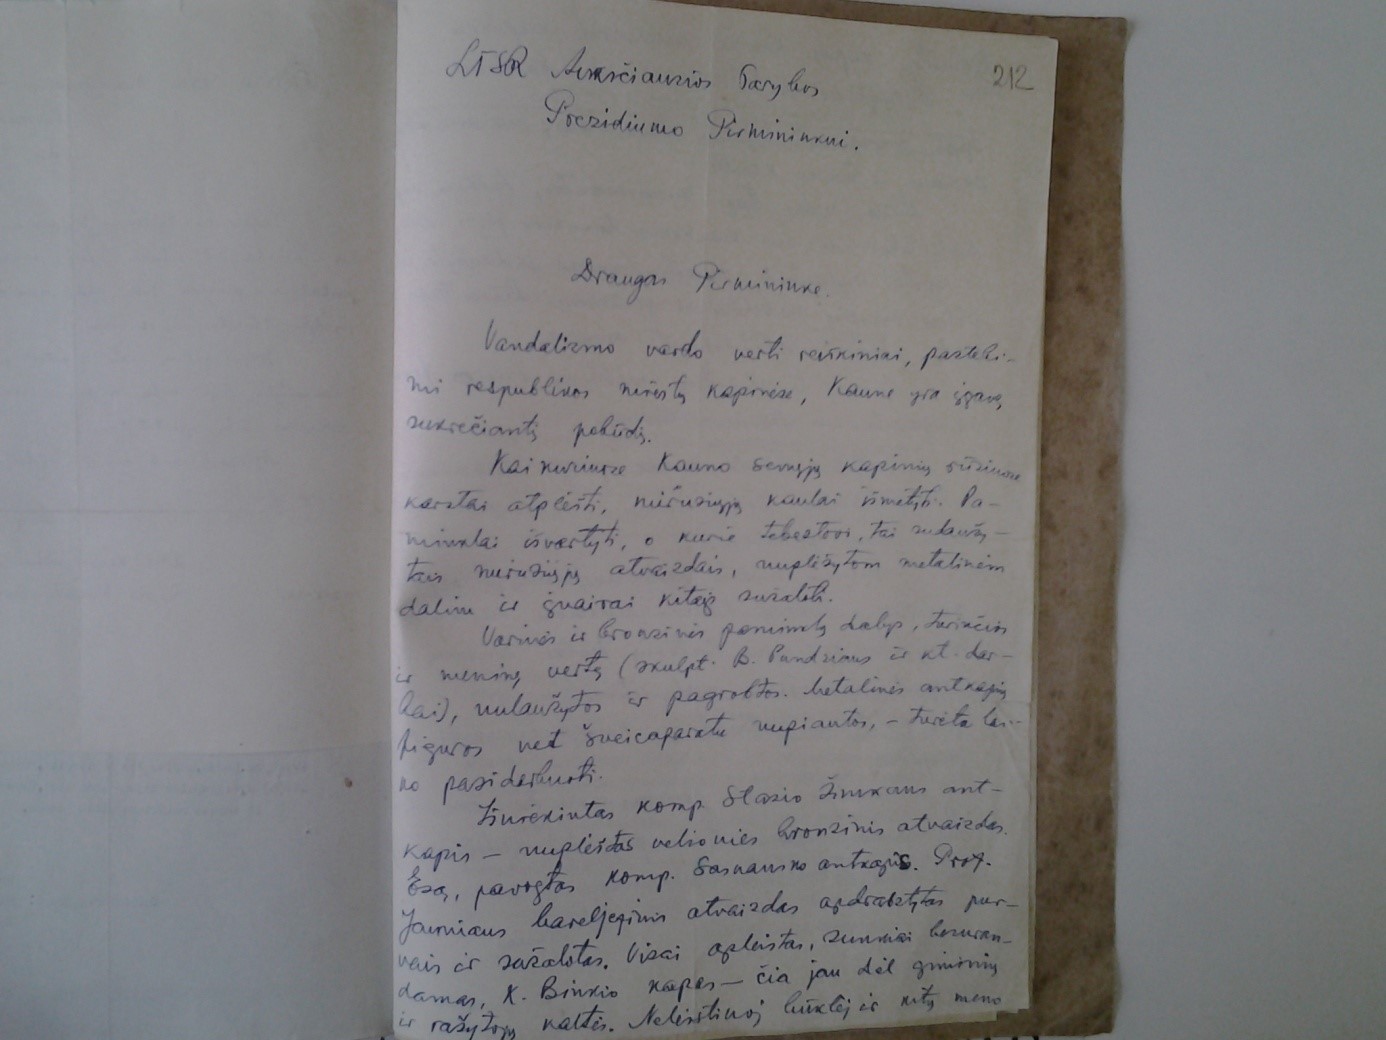 212
LTSR Aukščiausios Tarybos
Prezidiumo Pirmininkui.
Draugas Pirmininke.
Vandalizmo vardo verti reiškiniai, pastebi-
mi respublikos miestų kapinėse, Kaune yra įgavę
sukrečiantį pobūdį.
Kai kuriuose Kauno senųjų kapinių rūsiuose
karstai atplėšti, mirusiųjų kaulai išmėtyti. Pa-
minklai išvartyti, o kurie tebestovi, tai sudaužy-
tais mirusiųjų atvaizdais, nuplėšytom metalinėm
dalim ir įvairiai kitaip sužaloti.
Varinės ir bronzinės paminklų dalys, turinčios
ir meninę vertę (skulpt. B. Pundziaus ir kt. dar-
bai), nulaužytos ir pagrobtos. Metalinės antkapių
figuros net šveicaparatu nupiautos, – turėta lai-
ko pasidarbuoti.
Išniekintas komp. Stasio Šimkaus ant-
kapis – nuplėštas velionies bronzinis atvaizdas.
Esą, pavogtas komp. Sasnausko antkapis. Prof.
Jauniaus bareljefinis atvaizdas apdrabstytas pur-
vais ir sužalotas. Visai apleistas, sunkiai besuran-
damas, K. Binkio kapas – čia jau dėl giminių
ir rašytojų kaltės. Neleistinoj būklėj ir kitų meno